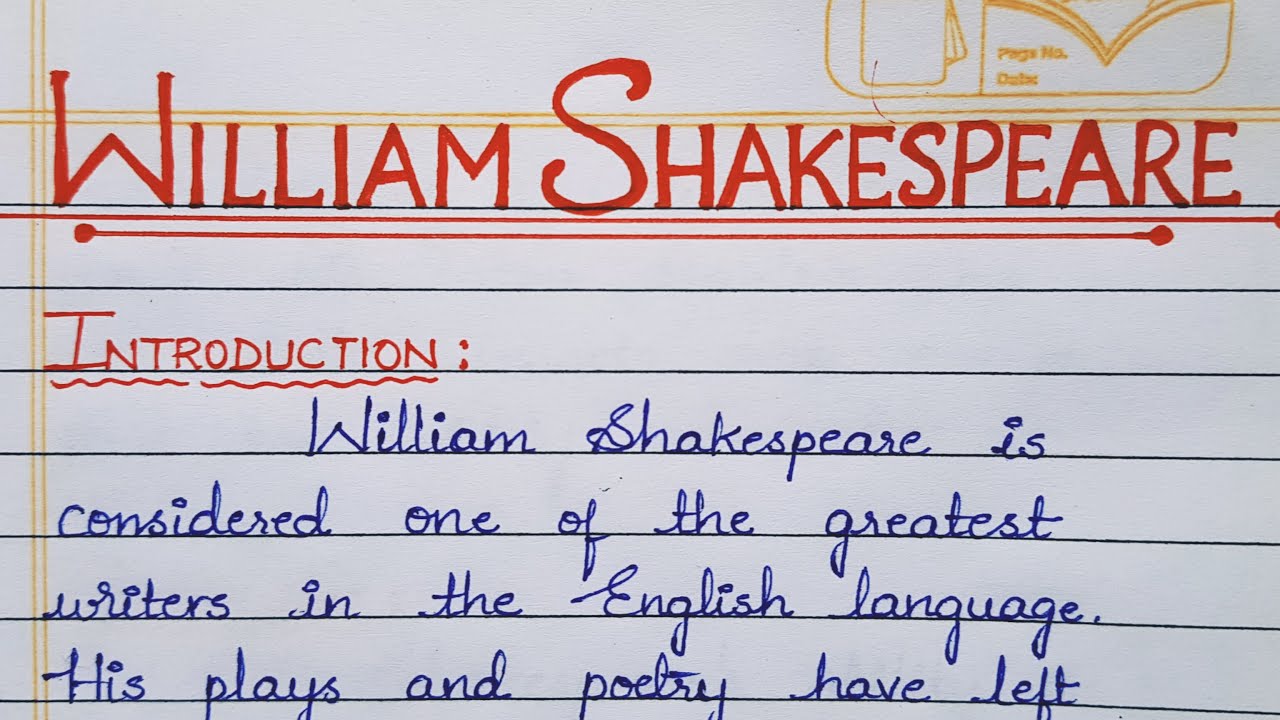 Page No.
Date:
WILLIAM SHAKESPEARE
INTRODUCTION:
William Shakespeare is
considered one of the greatest
writers in the English language.
His plays and poetry have left